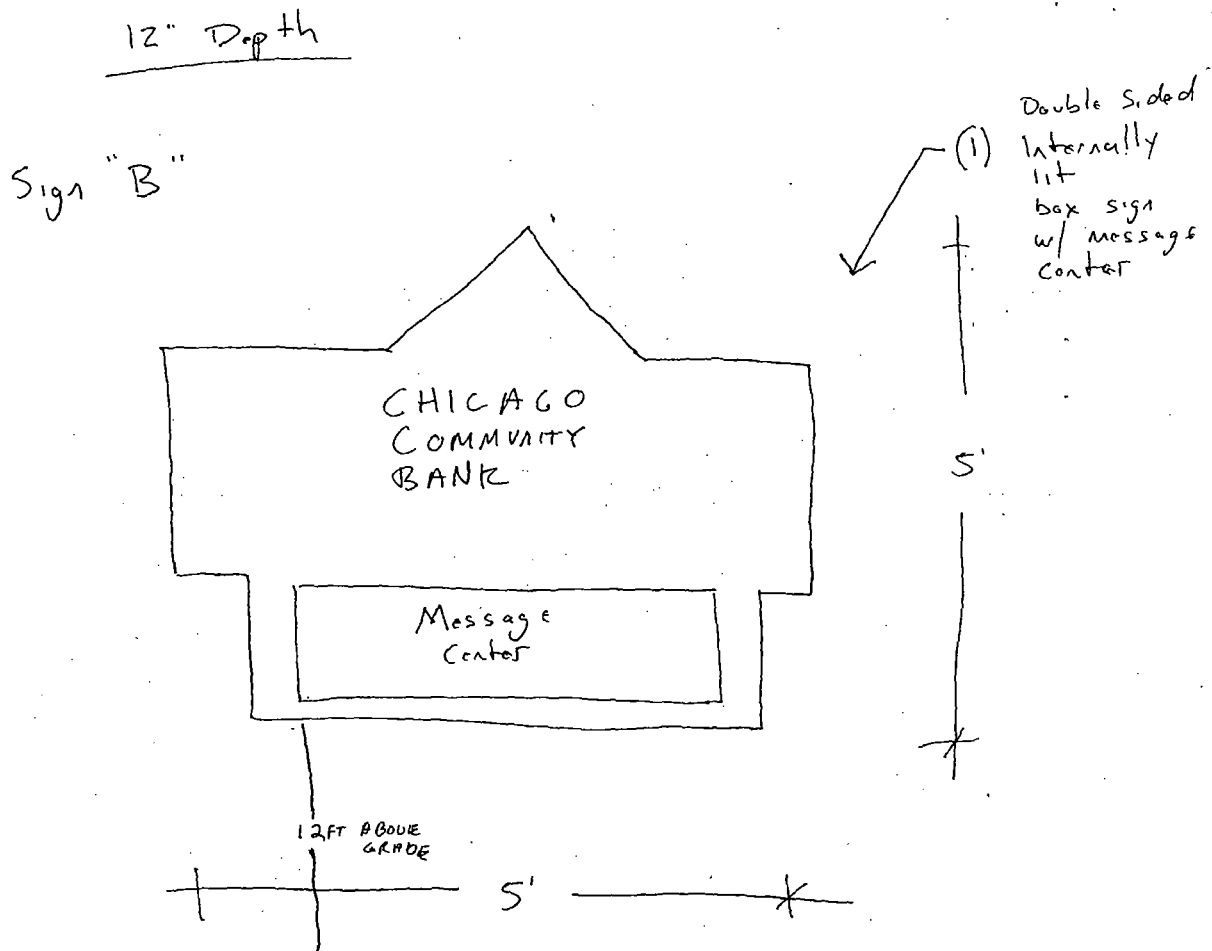 12" Depth
Sign "B"
(1) Double Sided
Internally
lit
box sign
w/ message
Center
CHICAGO
COMMUNITY
BANK
5'
Message
Center
12FT ABOVE
GRADE
5'